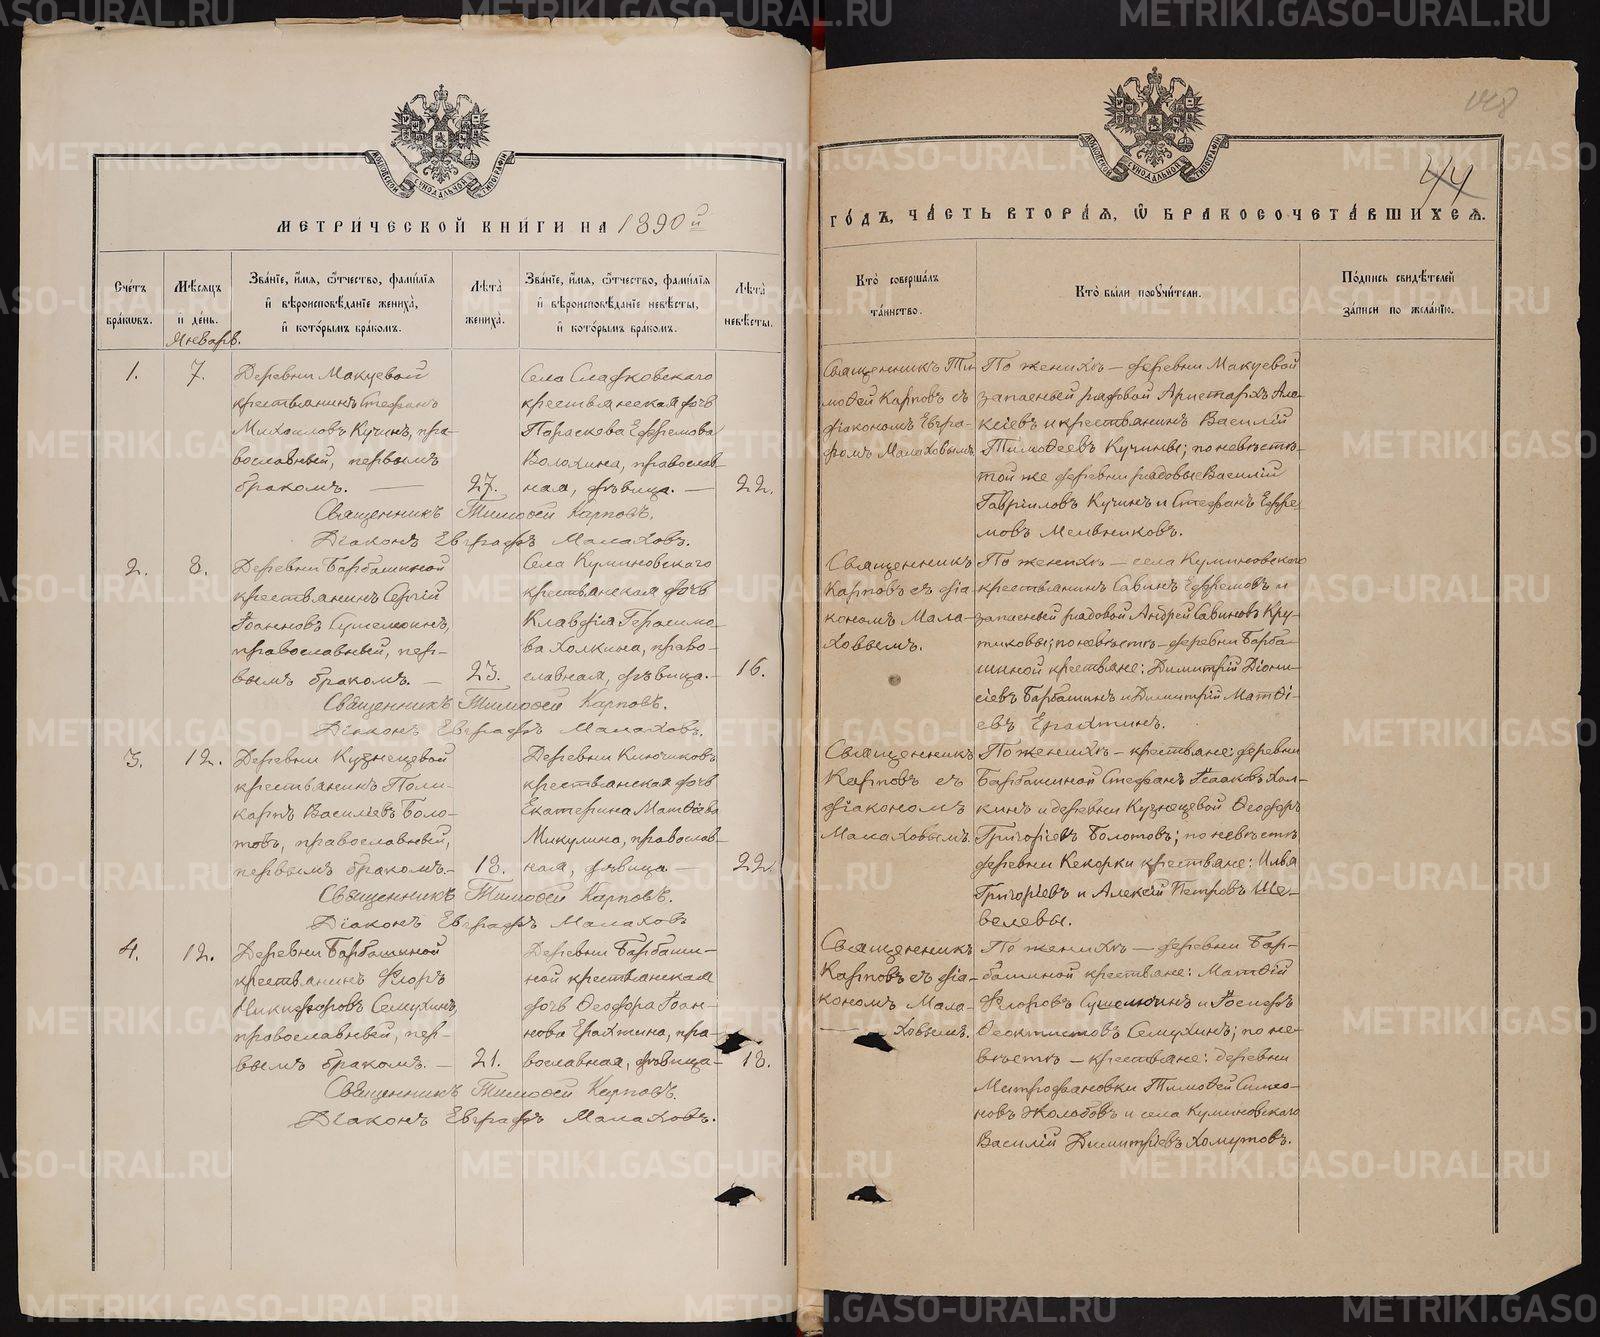 МЕТРИ́ЧЕСКОЙ КНИ́ГИ НА 1890 й
Сче́тъ бра́кωвъ.
Мѣ́сяцъ и҆ де́нь.
Зва́нїе, и҆́мѧ, ѻ҆́тчество, фами́лїѧ и҆ вѣроисповѣ́данїе жениха̀, и҆ кото́рымъ бра́комъ.
Лѣ́та жениха̀.
Зва́нїе, и҆́мѧ, ѻ҆́тчество, фами́лїѧ и҆ вѣроисповѣ́данїе невѣ́сты, и҆ кото́рымъ бра́комъ.
Лѣ́та невѣ́сты.
Январь.
1.
7.
Деревни Макуевой
крестьянинъ Стефанъ
Михаиловъ Кучинъ, пра-
вославный, первымъ
бракомъ. —
27.
Села Сладковскаго
крестьянская дочь
Параскева Ефремова
Волохина, православ-
ная, дѣвица. —
22.
Священникъ Тимоѳей Карповъ.
Діаконъ Евграфъ Малаховъ.
2.
8.
Деревни Барбашиной
крестьянинъ Сергій
Іоанновъ Сушелкинъ,
православный, пер-
вымъ бракомъ. —
23.
Села Куминовскаго
крестьянская дочь
Клавдіа Герасимо-
ва Холкина, право-
славная, дѣвица. —
16.
Священникъ Тимоѳей Карповъ.
Діаконъ Евграфъ Малаховъ.
3.
12.
Деревни Кузнецевой
крестьянинъ Поли-
карпъ Василіевъ Боло-
товъ, православный,
первымъ бракомъ. —
18.
Деревни Ключиковъ
крестьянская дочь
Екатерина Матѳіева
Микулина, православ-
ная, дѣвица. —
22.
Священникъ Тимоѳей Карповъ.
Діаконъ Евграфъ Малаховъ
4.
12.
Деревни Барбашиной
крестьянинъ Флоръ
Никифоровъ Семухинъ,
православный, пер-
вымъ бракомъ. —
21.
Деревни Барбаши-
ной крестьянская
дочь Ѳеодора Іоан-
нова Ерахтина, пра-
вославная, дѣвица —
18.
Священникъ Тимоѳей Карповъ.
Діаконъ Евграфъ Малаховъ.
148
44
ГО́ДЪ, ЧА́СТЬ ВТОРА́Ѧ, Ѡ҆ БРАКОСОЧЕТА́ВШИХСѦ.
Кто̀ соверша́лъ та́инство.
Кто̀ бы́ли порꙋчи́тели.
По́дпись свидѣ́телей за́писи по жела́нїю.
Священникъ Ти-
моѳей Карповъ съ
діакономъ Евгра-
фомъ Малаховымъ
По женихѣ — деревни Макуевой
запасный рядовой Аристархъ Але-
ксіевъ и крестьянинъ Василій
Тимоѳеевъ Кучины; по невѣстѣ
той же деревни рядовые Василій
Гавріиловъ Кучинъ и Стефанъ Ефре
мовъ Мельниковъ.
Священникъ
Карповъ съ діа-
кономъ Мала-
ховымъ.
По женихѣ — села Куминовскаго
крестьянинъ Савинъ Ефремовъ и
запасный рядовой Андрей Савиновъ Кру-
тиковы; по невѣстѣ — деревни Барба-
шиной крестьяне: Димитрій Діони-
сіевъ Барбашинъ и Димитрій Матѳі-
евъ Ерахтинъ.
Священникъ
Карповъ съ
діакономъ
Малаховымъ.
По женихѣ — крестьяне: деревни
Барбашиной Стефанъ Исааковъ Хол-
кинъ и деревни Кузнецевой Ѳеодоръ
Григоріевъ Болотовъ; по невѣстѣ
деревни Кекорки крестьяне: Илья
Григоріевъ и Алексій Петровъ Ше-
велевы.
Священникъ
Карповъ съ діа-
кономъ Мала-
— ховымъ.
По женихѣ — деревни Бар-
башиной крестьяне: Матѳій
Флоровъ Сушелкинъ и Іосифъ
Ѳеоктистовъ Семухинъ; по не-
вѣстѣ — крестьяне: деревни
Митрофановки Тимоѳей Симео-
новъ Жолобовъ и села Куминовскаго
Василій Димитріевъ Хомутовъ.